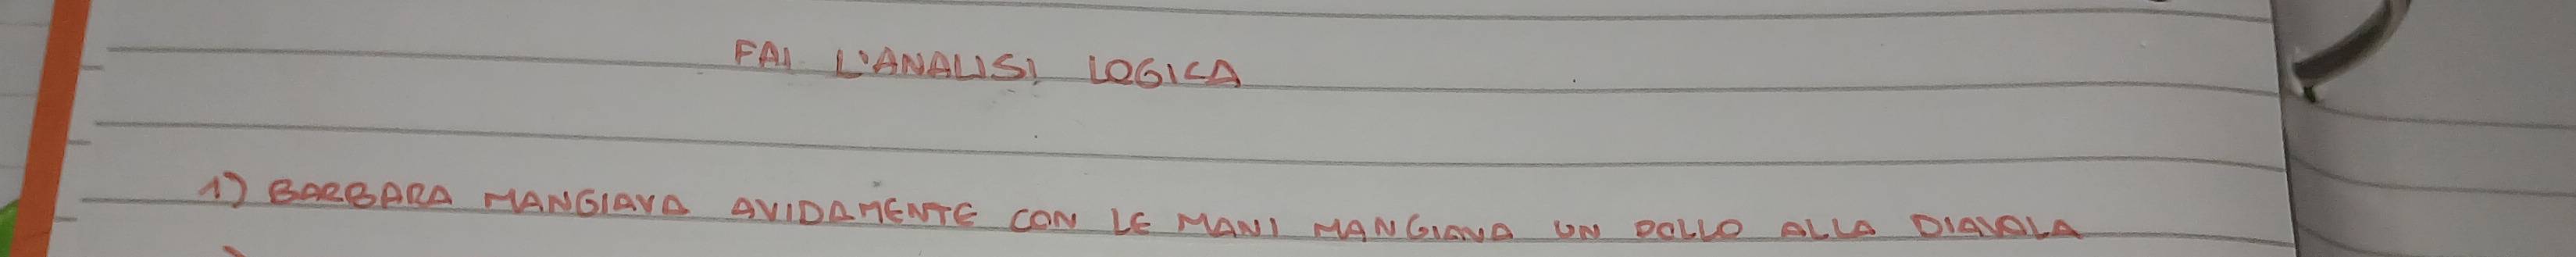 FAI L'ANALISI LOGICA
1) BARBARA MANGIAVA AVIDAMENTE CON LE MANI MANGIAVA UN POLLO ALLA DIAVOLA